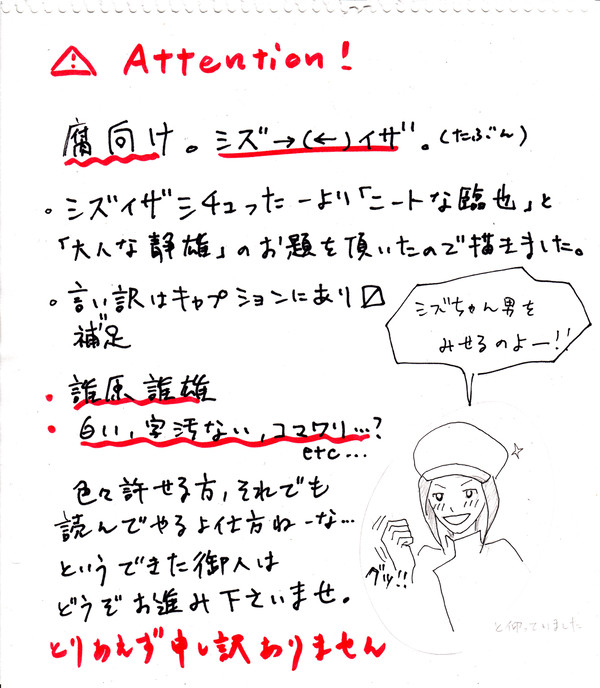 ⚠ Attention!
腐向け。シズ→(←)イザ。(たぶん)
・シズイザシチュったーより「ニートな臨也」と
「大人な静雄」のお題を頂いたので描きました。
・言い訳はキャプションにあり〼
補足
シズちゃん男を
みせるのよー!!
・誰原誰雄
・白い,字汚ない,コマワリ…?
etc…
色々許せる方,それでも
読んでやるよ仕方ねーな…
というできた御人は
どうぞお進み下さいませ。
グッ!!
と仰っていました
とりあえず申し訳ありません